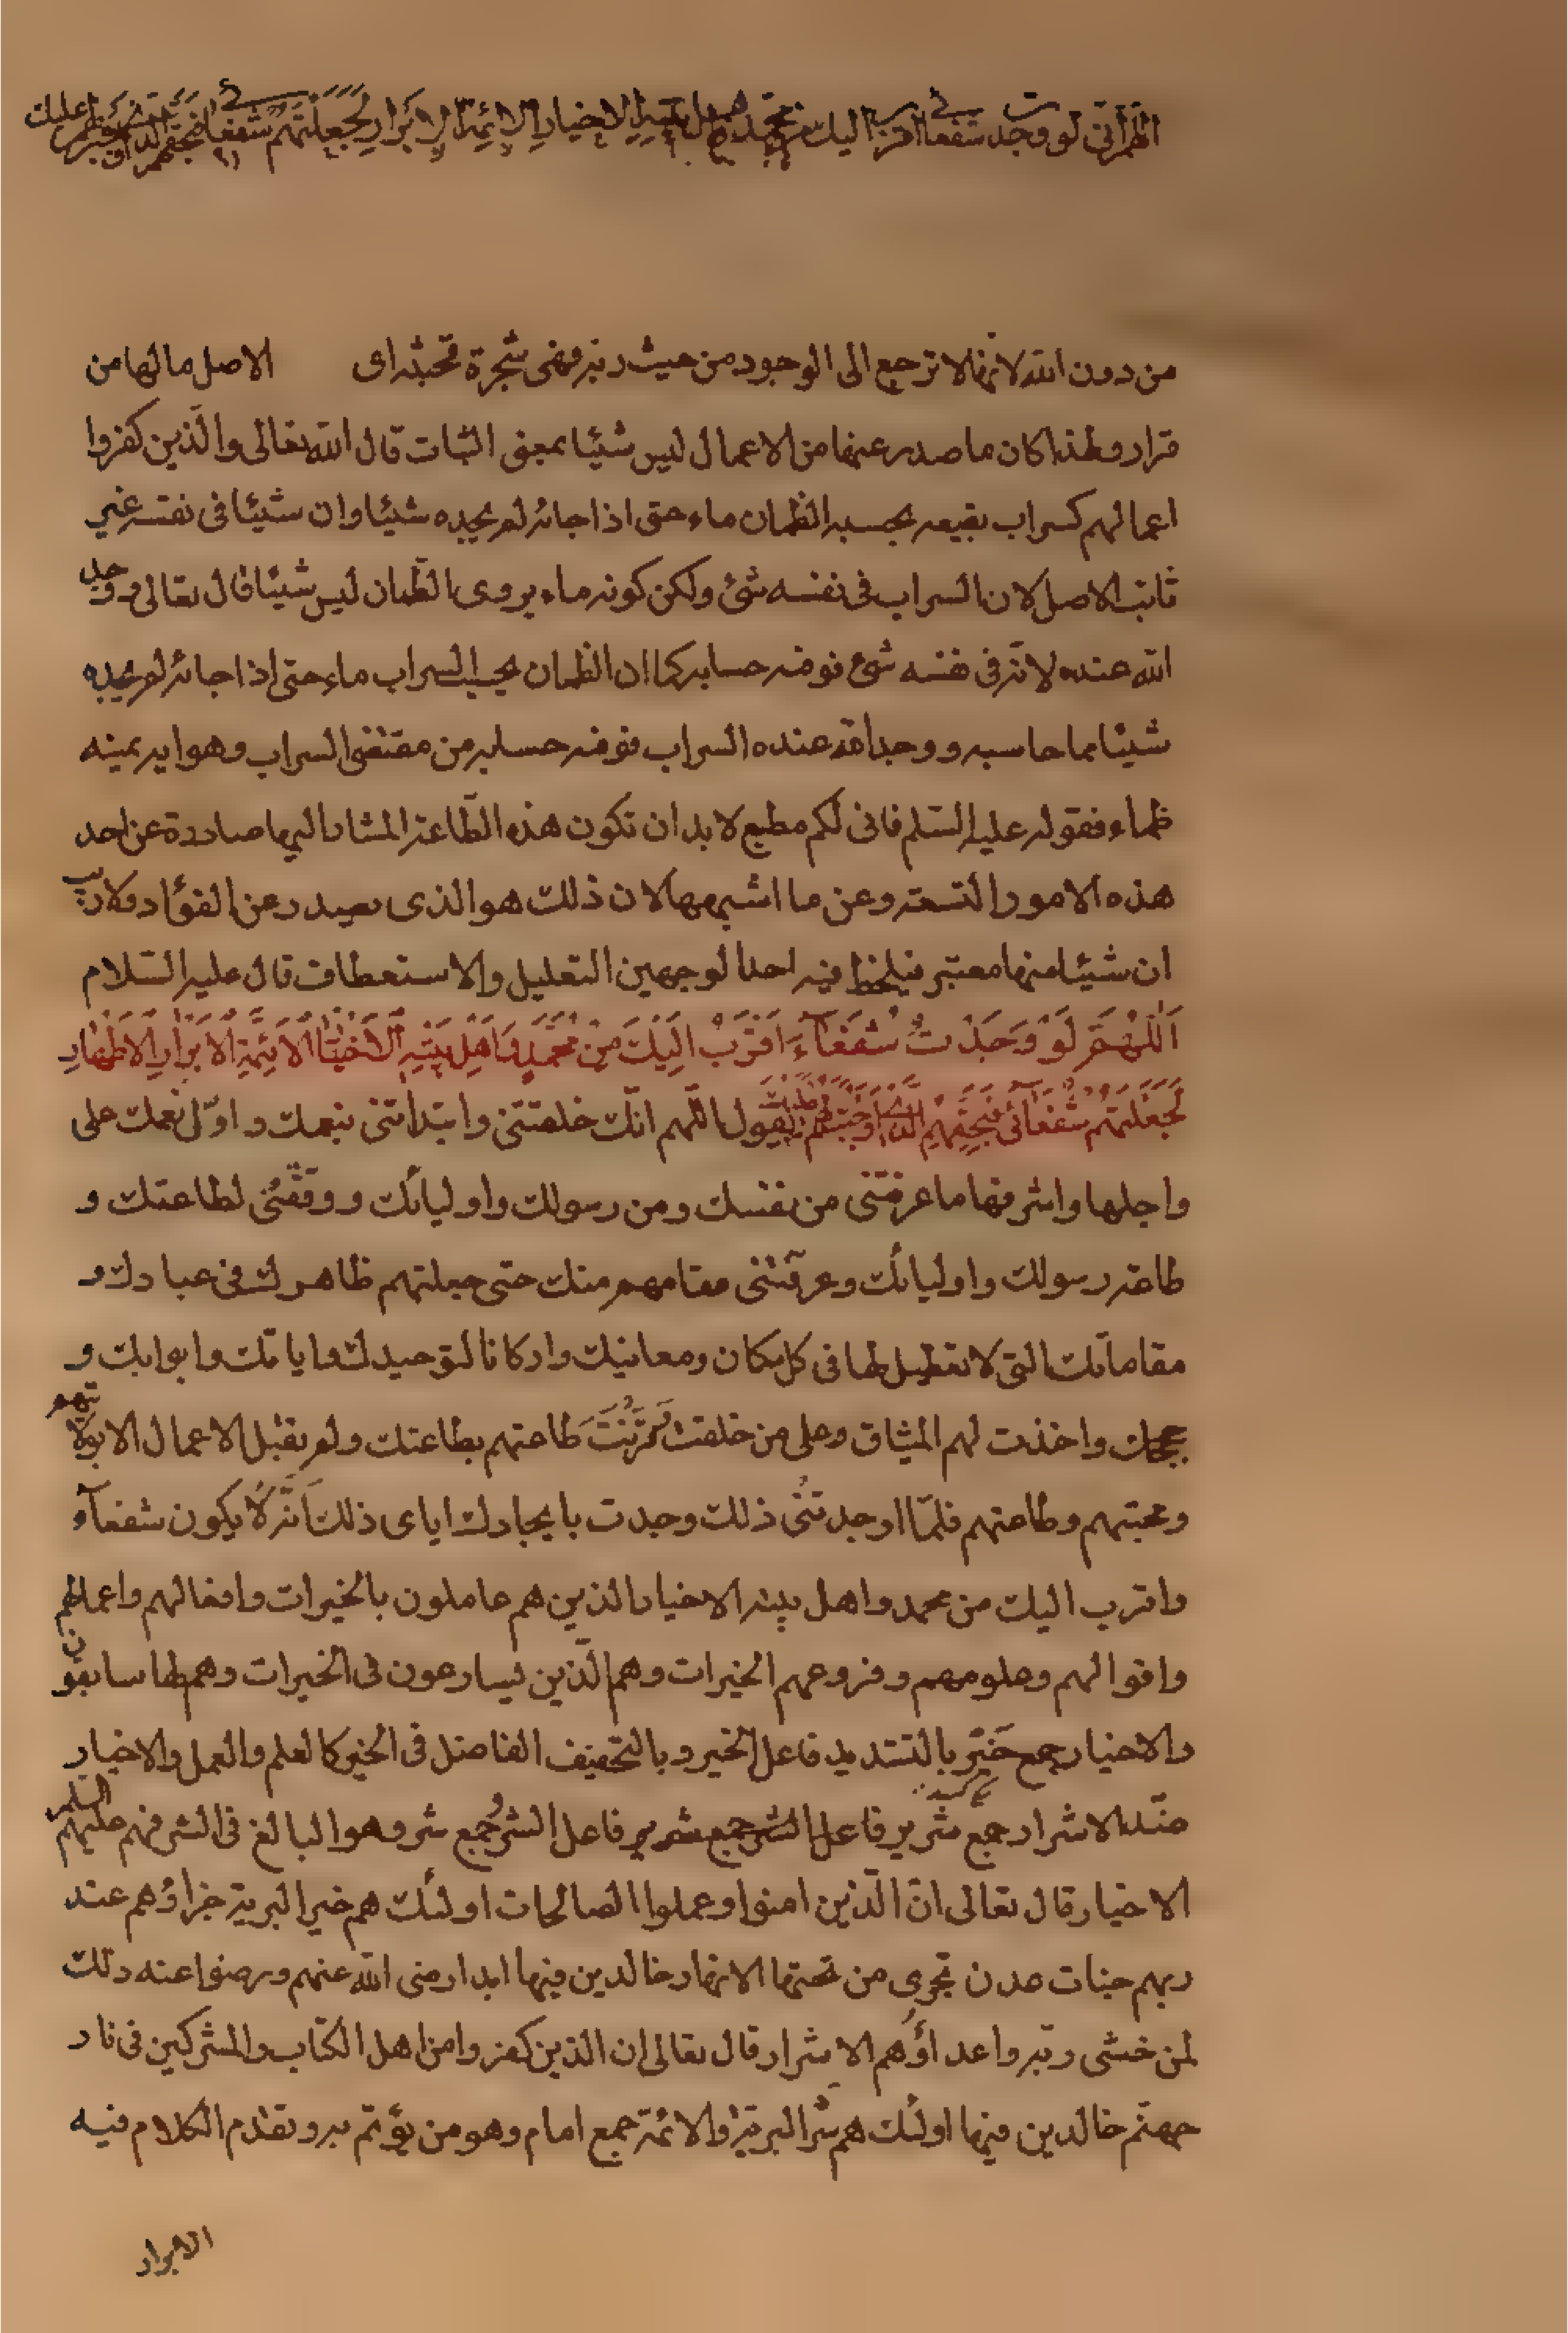 اللهم اني لو وجدت شفعاء اقرب اليك من محمد و اهل بيته الاخيار الائمة الابرار لجعلتهم شفعائي فبحقهم الذي اوجبت لهم عليك
من دون الله لانها لا ترجع الى الوجود من حيث ربه فهى شجرة مجتثه اى الاصل مالها من
قرار ولهذا كان ما صدر عنها من الاعمال ليس شيئا بمعنى الثبات قال الله تعالى والّذين كفروا
اعمالهم كسراب بقيعه يحسبه الظمان ماء حتى اذا جائه لم يجده شيئا وان شيئا فى نفسه غير
ثابت الاصل لان السراب فى نفسه شئ ولكن كونه ماء يروى الظّمان ليس شيئا قال تعالى و وجد
الله عنده لانّه فى نفسه شئ فوفيه حسابه كما ان الظمان يحسب السراب ماء حتى اذا جائه لم يجده
شيئا مما حاسبه و وجد الله عنده السراب فوفيه حسابه من مقتضى السراب وهو ايه يمينه
ظماء فقوله عليه السّلم فانى لكم مطيع لا بد ان تكون هذه الطّاعة المشار اليها صادرة عن احد
هذه الامور التسعة وعن ما اشبهها لان ذلك هو الذى يصدر عن الفؤاد ولا ريب
ان شيئا منها معتبر فيلحظ فيه احد الوجهين التعليل والاستعطاف قال عليه السّلام
اَللّهُمَّ لَوْ وَجَدْتُ شُفَعآءَ اَقْرَبَ اِلَيْكَ مِنْ مُحَمَّدٍ وَ اَهْلِ بَيْتِهِ الْاَخْيٰارِ الْاَئِمَّةِ الْاَبْرٰارِ الْاَطْهٰارِ
لَجَعَلْتُهُمْ شُفَعٰآئى فَبِحَقِّهِمُ الَّذى اَوْجَبْتَ لَهُمْ عَلَيْكَ يقول اللّهم انّك خلقتنى وابتداتنى بنعمك و اوّل نعمك على
واجلها واشرفها ما عرفتنى من نفسك ومن رسولك واوليائك ووفّقتنى لطاعتك و
طاعة رسولك واوليائك وعرّفتنى مقامهم منك حتى جعلتهم ظاهرك فى عبادك و
مقاماتك التى لا تعطيل لها فى كل مكان ومعانيك واركانا لتوحيدك واياتك وابوابك و
حججك واخذت لهم الميثاق وعلى من خلقت قَرَنْتَ طاعتهم بطاعتك ولم يقبل الاعمال الا بولايتهم
ومحبتهم وطاعتهم فلمّا اوجدتنى ذلك وجدت بايجادك اياى ذلك اَنَّه لا يكون شفعآء
واقرب اليك من محمد واهل بيته الاخيار الذين هم عاملون بالخيرات وافعالهم واعمالهم
واقوالهم وعلومهم وفروعهم الخيرات وهم الّذين يسارعون فى الخيرات وهم لها سابقون
والاخيار جمع خَيّر بالتشديد فاعل الخير و بالتخفيف الفاضل فى الخير كالعلم والعمل والاخيار
ضدّ الاشرار جمع شرير فاعل الشر جمع شرير فاعل الشر وجمع شر وهو البالغ فى الشر فهم عليهم السلم
الاخيار قال تعالى انّ الّذين امنوا وعملوا الصالحات اولئك هم خير البرية جزاؤهم عند
ربهم جنات عدن تجرى من تحتها الانهار خالدين فيها ابدا رضى الله عنهم ورضوا عنه ذلك
لمن خشى ربّه واعداؤهم الاشرار قال تعالى ان الذين كفروا من اهل الكتاب والمشركين فى نار
جهنّم خالدين فيها اولئك هم شرّ البرية والائمّة جمع امام وهو من يؤتم به و تقدّم الكلام فيه
الابرار